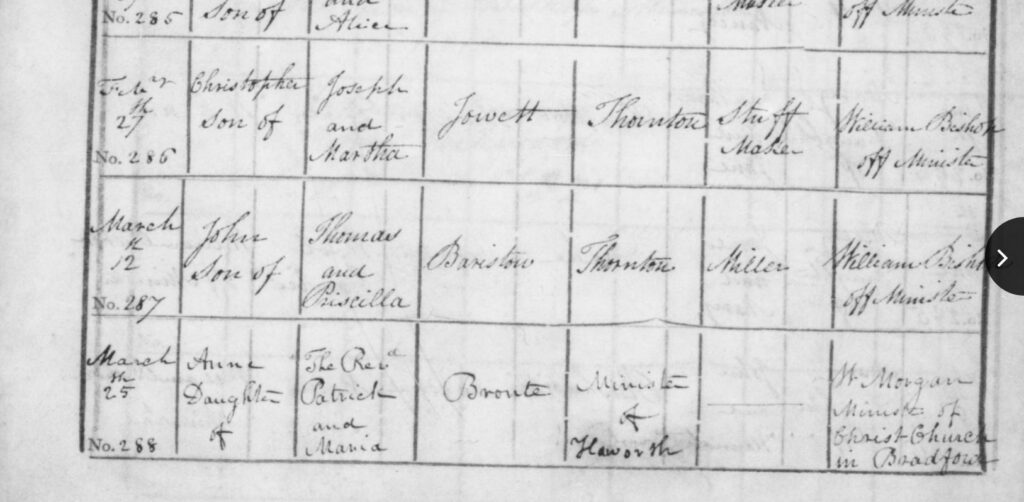 No. 285
Son of
and
Alice
Maker
off Ministe
Feb.ry
27th
No. 286
Christopher
Son of
Joseph
and
Martha
Jowett
Thornton
Stuff
Maker
William Bishop
off Ministe
March
12th
No. 287
John
Son of
Thomas
and
Priscilla
Baristow
Thornton
Miller
William Bisho
off Ministe
March
25th
No. 288
Anne
Daughter
of
The Revd
Patrick
and
Maria
Bronte
Minister
of
Haworth
Wm Morgan
Minister of
Christ Church
in Bradford